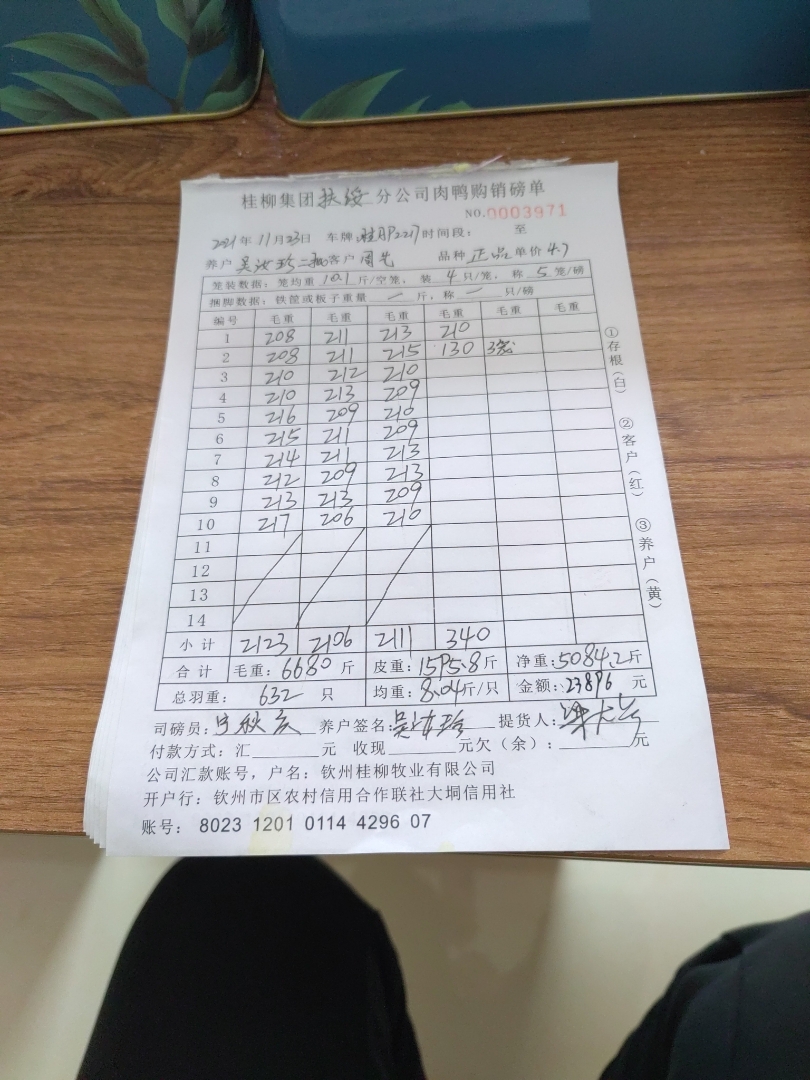 桂柳集团扶绥分公司肉鸭购销磅单
NO.0003971
2021年11月23日 车牌 2217 时间段: 至
养户 吴汝珍二批 客户 周先 品种 正品 单价 4.7
笼装数据: 笼均重 10.1 斤/空笼, 装 4 只/笼, 称 5 笼/磅
捆脚数据: 铁筐或板子重量 — 斤, 称 — 只/磅
编号 毛重 毛重 毛重 毛重 毛重 毛重
1 208 211 213 210
2 208 211 215 130 3笼
3 210 212 210
4 210 213 209
5 216 209 210
6 215 211 209
7 214 211 213
8 212 209 213
9 213 213 209
10 217 206 210
11
12
13
14
小计 2123 2106 2111 340
合计 毛重: 6680 斤 皮重: 1595.8 斤 净重: 5084.2 斤
总羽重: 632 只 均重: 8.04 斤/只 金额: 23896 元
司磅员: 养户签名: 吴汝珍 提货人:
付款方式: 汇 元 收现 元欠(余): 元
公司汇款账号, 户名: 钦州桂柳牧业有限公司
开户行: 钦州市区农村信用合作联社大垌信用社
账号: 8023 1201 0114 4296 07
①存根(白)
②客户(红)
③养户(黄)